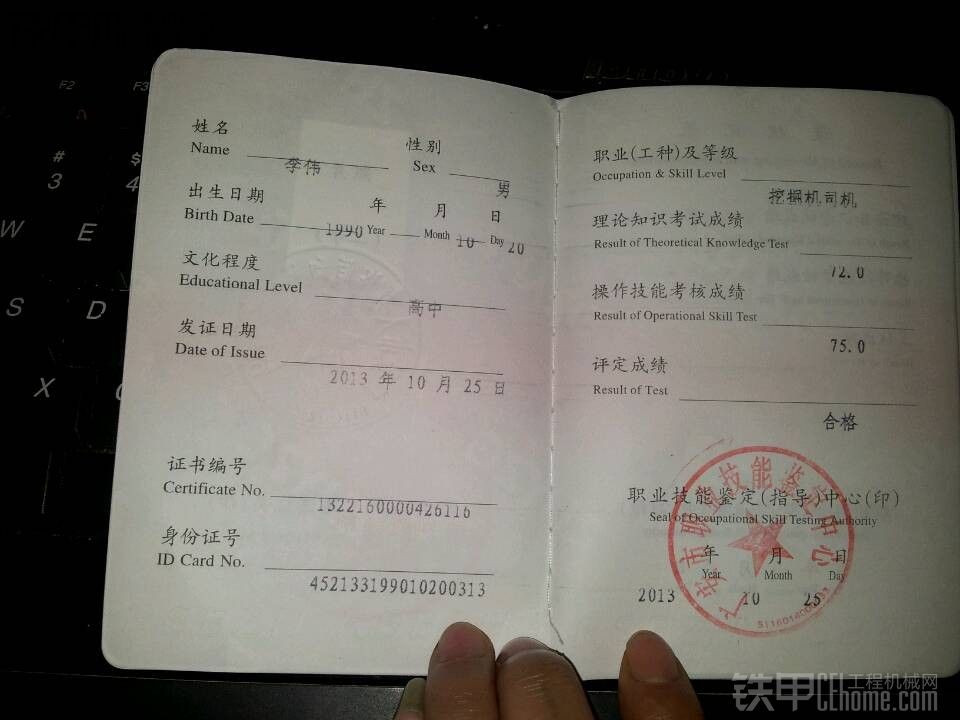 F2
F3
#
3
$
4
W
E
S
D
X
C
姓名
Name
李伟
性别
Sex
男
出生日期
Birth Date
1990 年 Year 10 月 Month 20 日 Day
文化程度
Educational Level
高中
发证日期
Date of Issue
2013 年 10 月 25 日
证书编号
Certificate No.
1322160000426116
身份证号
ID Card No.
452133199010200313
职业(工种)及等级
Occupation & Skill Level
挖掘机司机
理论知识考试成绩
Result of Theoretical Knowledge Test
72.0
操作技能考核成绩
Result of Operational Skill Test
75.0
评定成绩
Result of Test
合格
职业技能鉴定(指导)中心(印)
Seal of Occupational Skill Testing Authority
年 月 日
Year Month Day
2013 10 25
广安市职业技能鉴定中心
铁甲 工程机械网
CEhome.com